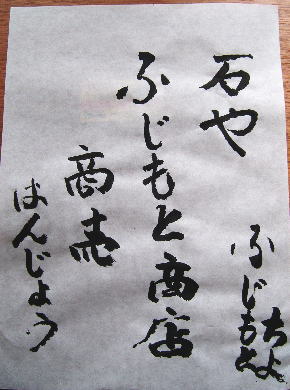 石や
ふじもと商店
商売
はんじょう
ふじもと
ちよ